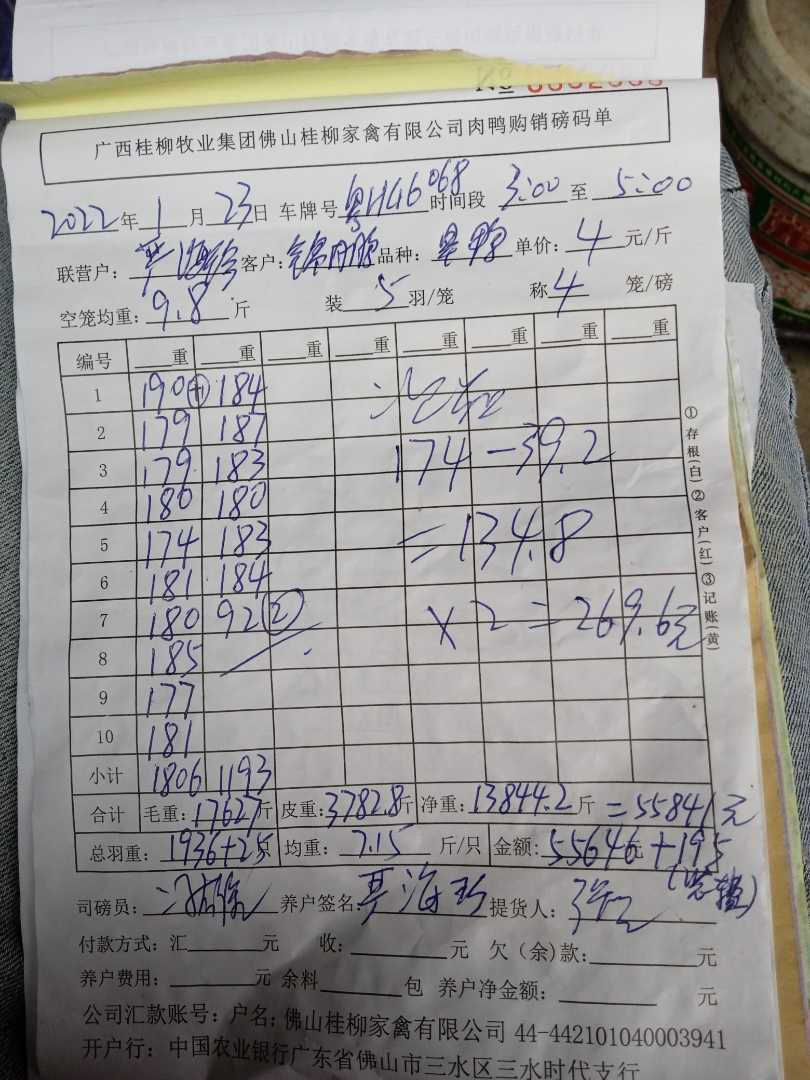 No
广西桂柳牧业集团佛山桂柳家禽有限公司肉鸭购销磅码单
2022年1月23日 车牌号粤H46068时间段3:00至5:00
联营户: 客户: 品种: 单价:4元/斤
空笼均重:9.8斤 装5羽/笼 称4笼/磅
编号 重 重 重 重 重 重 重
1 190 184
2 179 187
3 179 183 174-39.2
4 180 180
5 174 183 =134.8
6 181 184
7 180 92② ×2=269.6元
8 185
9 177
10 181
小计 1806 1193
合计 毛重:17627斤 皮重:3782.8斤 净重:13844.2斤=55841元
总羽重:1936+25只 均重:7.15斤/只 金额:55646元+195
司磅员: 养户签名: 提货人:
付款方式:汇 元 收: 元 欠(余)款: 元
养户费用: 元 余料 包 养户净金额: 元
公司汇款账号:户名:佛山桂柳家禽有限公司 44-442101040003941
开户行:中国农业银行广东省佛山市三水区三水时代支行
①存根(白)②客户(红)③记账(黄)